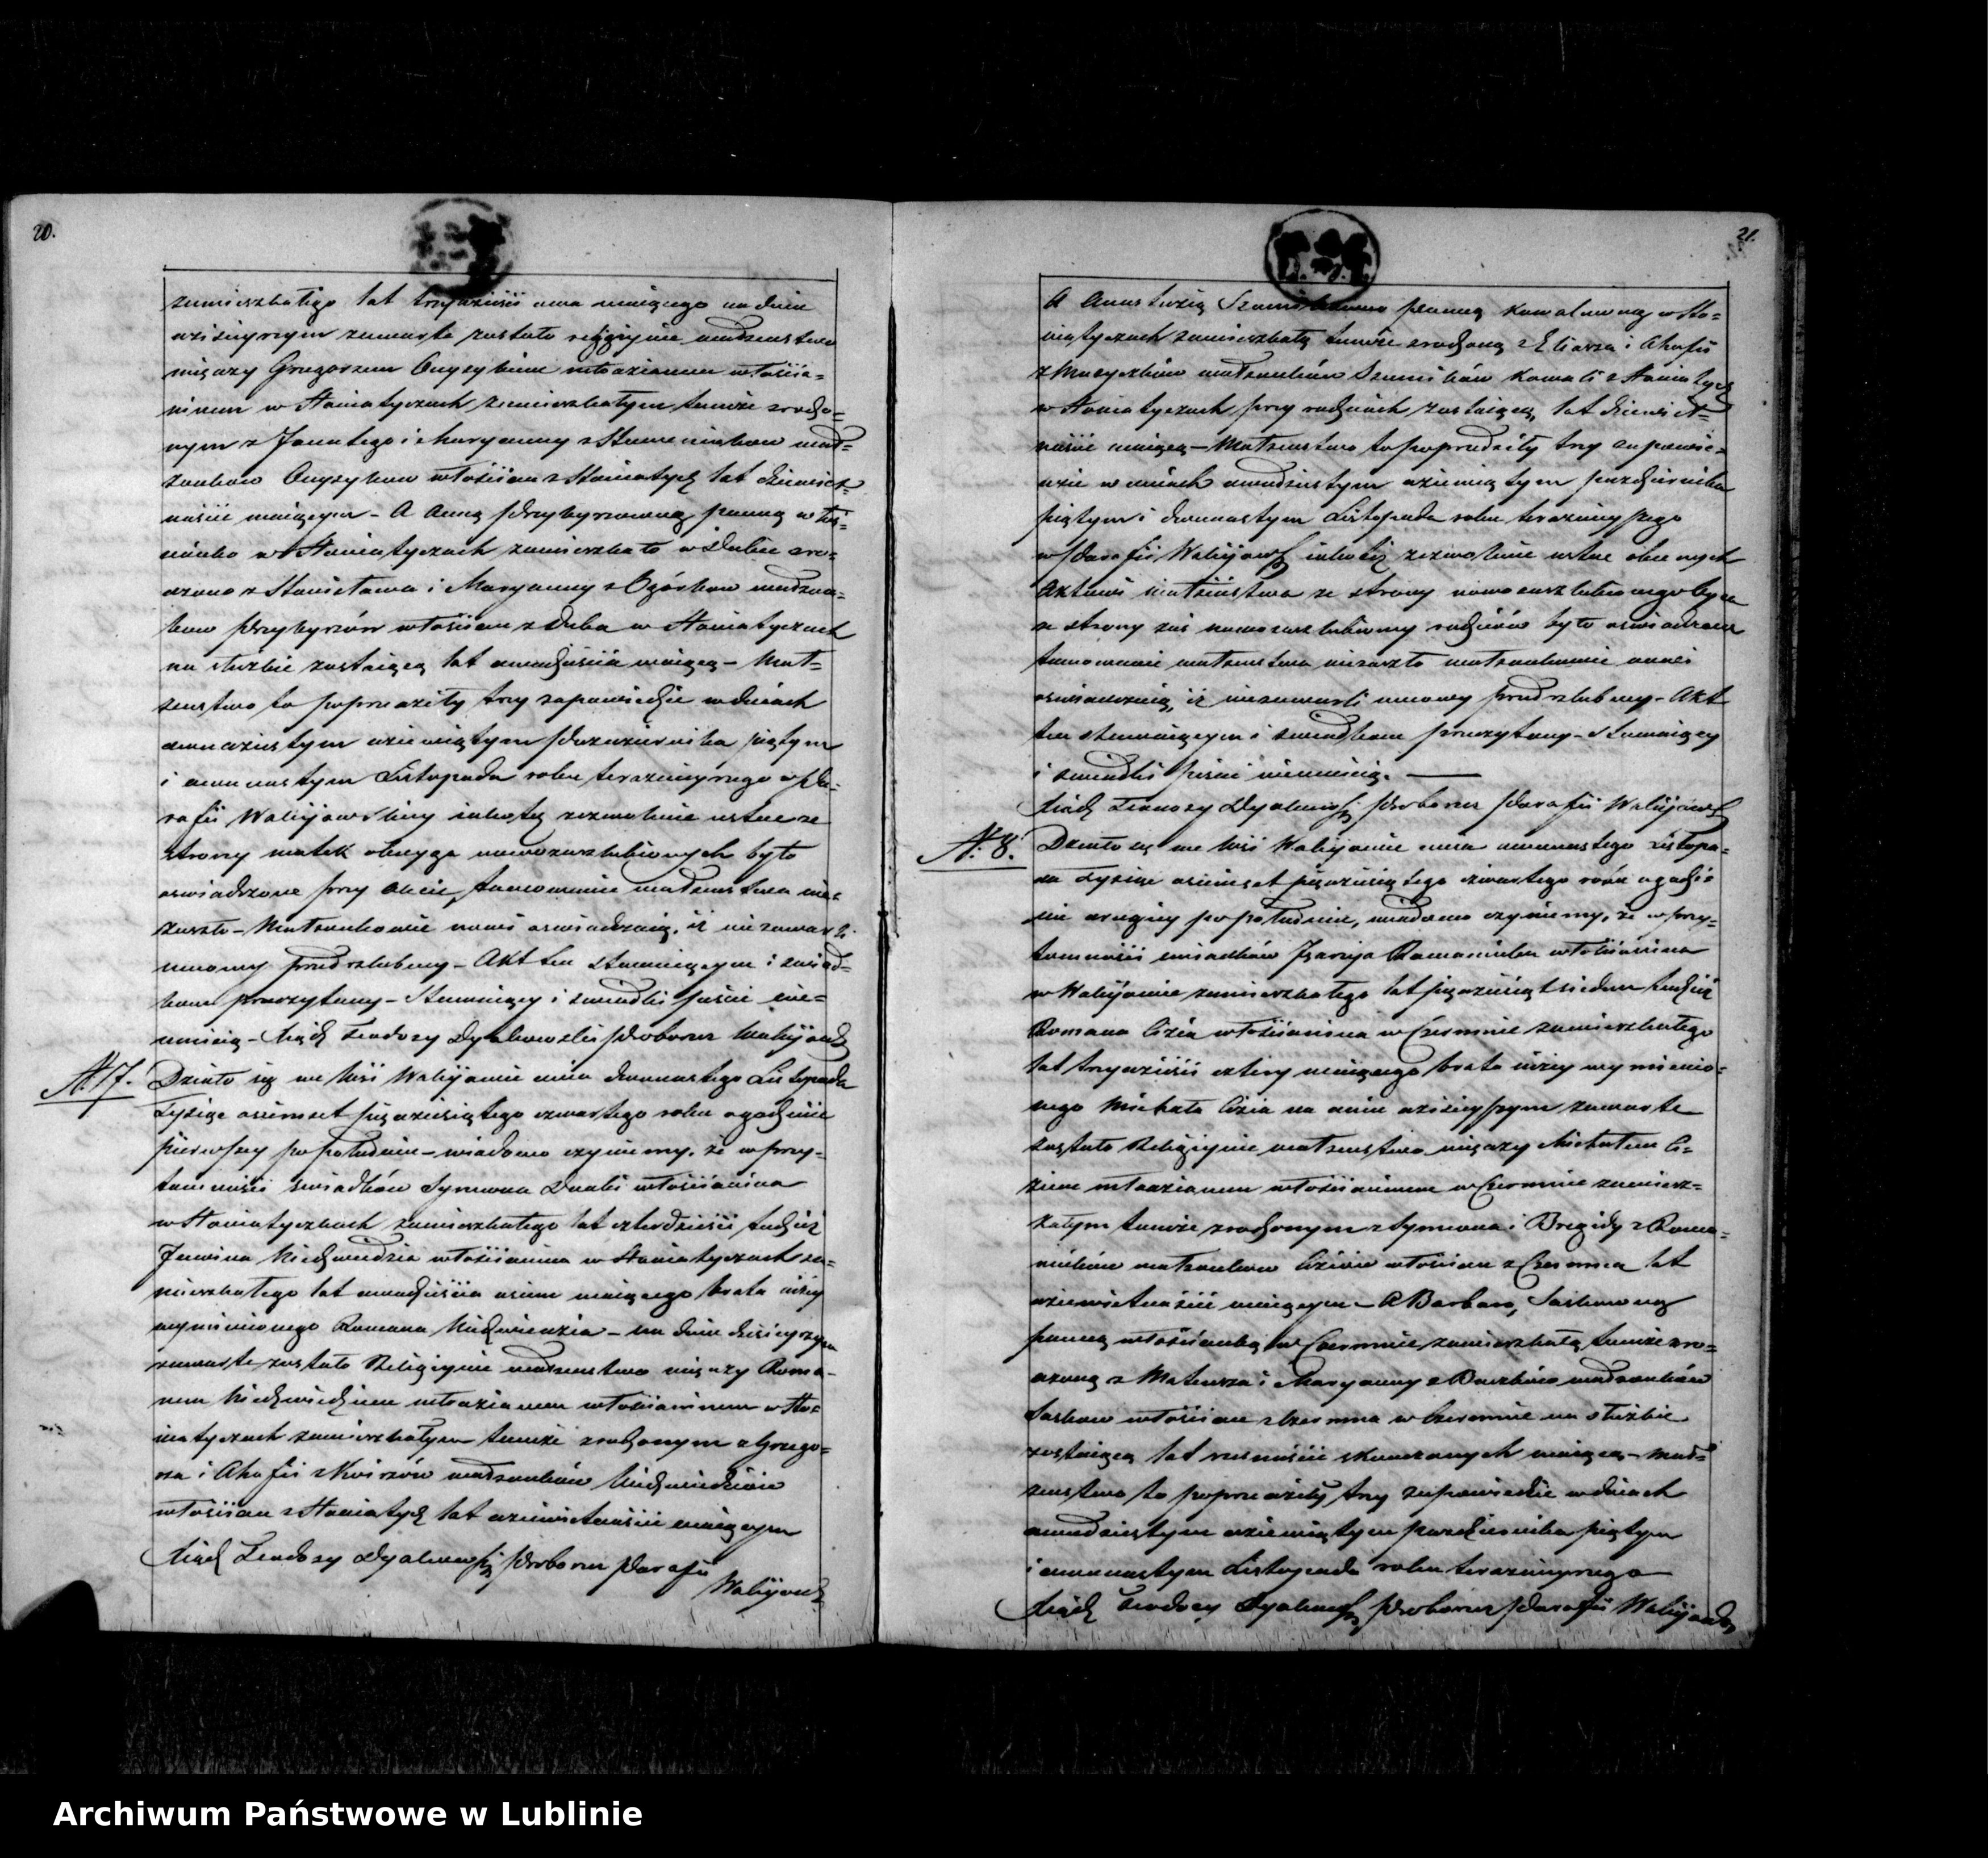 20.
zamieszkałego lat trzydzieści dwa maiącego na dniu
dzisieyszym zawarte zostało religiynie małżeństwo
między Grzegorzem młodzianem włościa=
ninem w Honiatyczach zamieszkałym tamże zrodzo=
nym z i Maryanny z małż=
żonków włościan z Honiatycz lat dziewięt=
naście maiącym – A Anną Przybyszowną panną włoś=
cianką w Honiatyczach zamieszkałą w Dubie zro=
dzoną z Stanisława i Maryanny z Ogórków małżon=
ków Przybyszów włościan z Duba w Honiatyczach
na służbie zostaiącą lat dwadzieścia maiącą – Mał=
żeństwo to poprzedziły trzy zapowiedzie w dniach
dwudziestym dziewiątym Października piątym
i dwunastym Listopada roku terazniejszego w Pa=
rafii Waliijowskiey iakoteż zezwolenie ustne ze
strony matek obojga nowozaslubionych było
oswiadczone przy akcie, tamowanie małżeństwa nie=
zaszło – Małżonkowie nowi oswiadczaią, iż nie zawarli
umowy przedslubney – Akt ten stawaiącym i świad=
kom przeczytany – Stawaiący i swiadki pisać nie=
umieią – Xiądz Teodozy Proboszcz
N. 7.
Działo się we Wsi Waliijowie dnia dwunastego Listopada
Tysiąc osiemset pięćdziesiątego czwartego roku o godzinie
pierwszey po południu – wiadomo czyniemy, że w przy=
tomności świadków Symeona włościanina
w Honiatyczach zamieszkałego lat czterdzieści tudzież
Niedzwiedzia włościanina w Honiatyczach za=
mieszkałego lat dwadzieścia osiem maiącego brata niżey
wymienionego Romana Niedzwiedzia – na dniu dzisieyszym
zawarte zostało Religiynie małżeństwo między Roma=
nem Niedzwiedziem młodzianem włościaninem w Ho=
niatyczach zamieszkałym tamże zrodzonym z Grzego=
rza i Ahafii z małżonków Niedzwiedziow
włościan z Honiatycz lat dziewiętnaście maiącym
Xiądz Teodozy Proboszcz Parafii
21.
A Anastazią panną Kowalowną w Ho=
niatyczach zamieszkałą tamże zrodzoną z Eliasza i Ahafii
z małżonków Kowali z Honiatycz
w Honiatyczach przy rodzicach zostaiącą, lat dziewięt=
naście maiącą – Małżeństwo to poprzedziły trzy zapowie=
dzie w dniach dwudziestym dziewiątym października
piątym i dwunastym Listopada roku terazniejszego
w Parafii iakoteż zezwolenie ustne obecnych
aktowi małżeństwa ze strony nowozaszlubionego oyca
ze strony zaś nowozaszlubioney rodziców było oswiadczone
tamowanie małżeństwa niezaszło małżonkowie nowi
oswiadczaią, iż niezawarli umowy przedslubney – Akt
ten stawaiącym i swiadkom przeczytany – Stawaiący
i swiadki pisać nieumieią. —
Xiądz Teodozy Proboszcz Parafii
N. 8.
Działo się we Wsi Waliijowie dnia dwunastego Listopa=
da Tysiąc osiemset pięćdziesiątego czwartego roku o godzi=
nie drugiey po południu, wiadomo czyniemy, że w przy=
tomności swiadków Romaniuka włościanina
w Waliijowie zamieszkałego lat pięćdziesiąt siedem tudzież
Romana Cizia włościanina w Czermnie zamieszkałego
lat trzydzieści cztery maiącego brata niżey wymienio=
nego Michała Cizia na dniu dzisieyszym zawarte
zostało Religiynie małżeństwo między Michałem Ci=
ziem młodzianem włościaninem w Czermnie zamiesz=
kałym tamże zrodzonym z Symeona i Brygidy z Roma=
niuków małżonków Ciziow włościan z Czermna lat
dziewietnaście maiącym – A Barbarą
panną włościanką w Czermnie zamieszkałą tamże zro=
dzoną z Mateusza i Maryanny z małżonków
włościan z Czermna w Czermnie na służbie
zostaiącą lat skonczonych maiącą – Mał=
żeństwo to poprzedziły trzy zapowiedzie w dniach
dwudziestym dziewiątym października piątym
i dwunastym Listopada roku terazniejszego
Xiądz Teodozy Proboszcz Parafii
Archiwum Państwowe w Lublinie